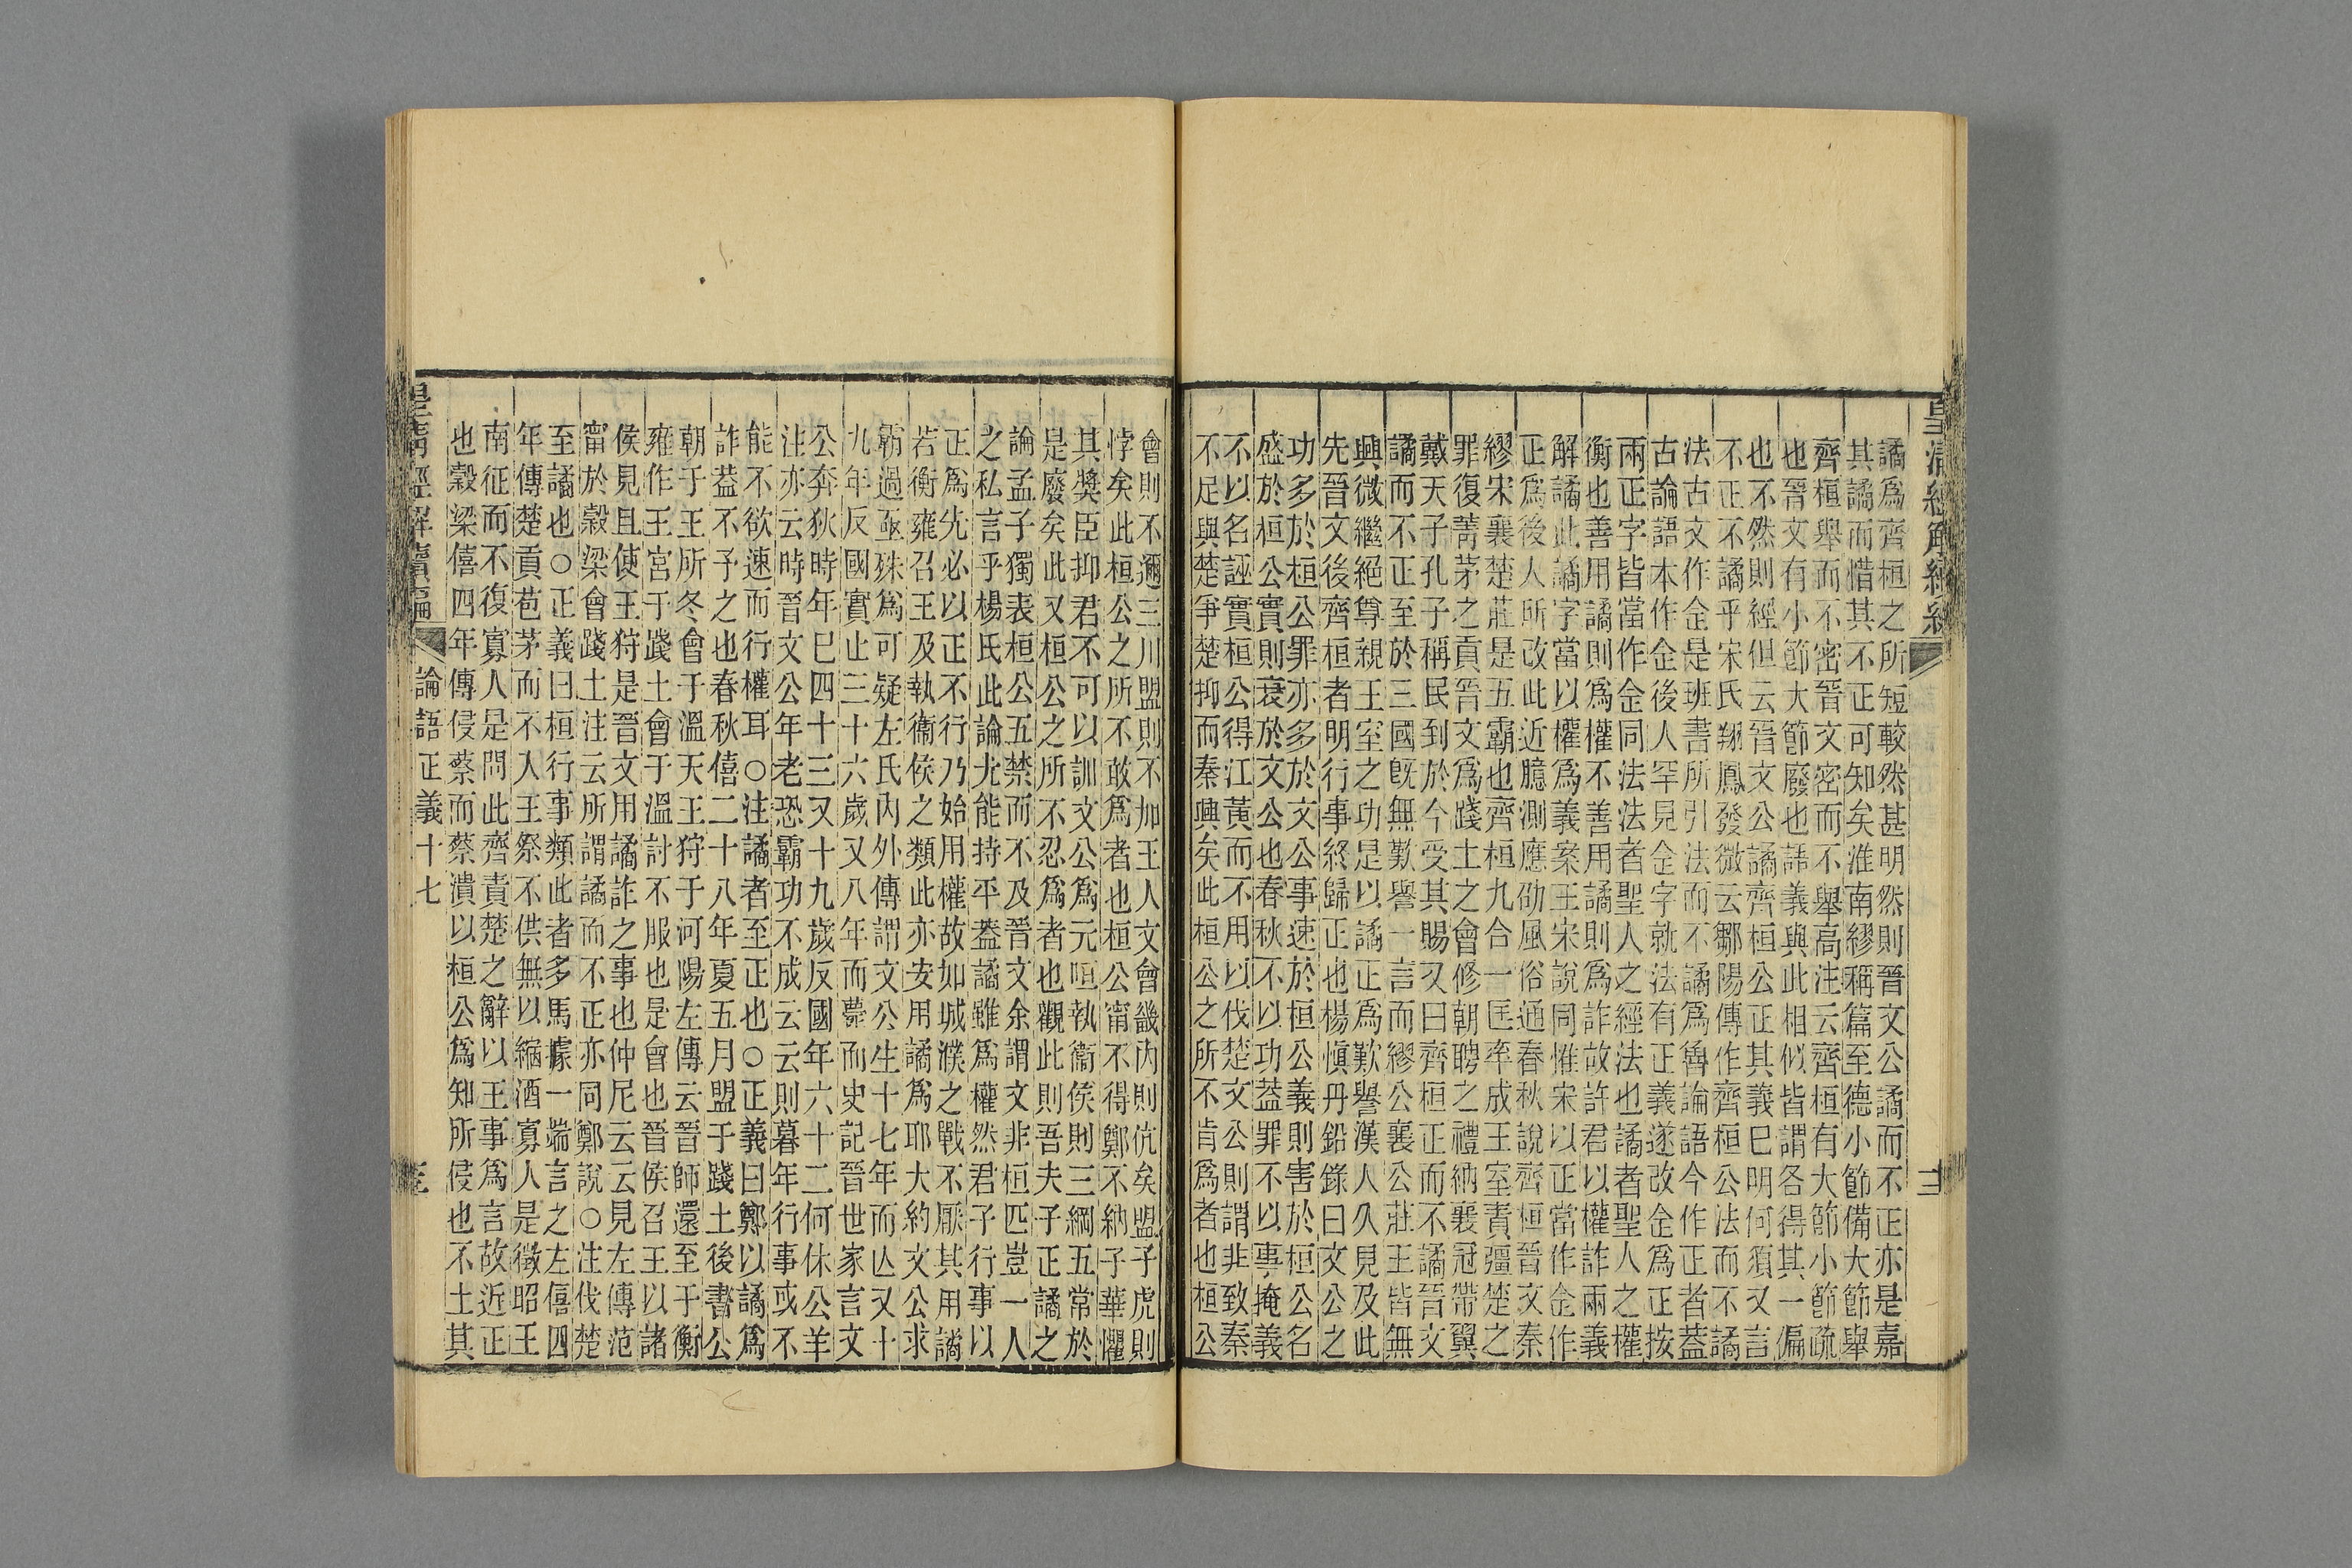 譎爲齊桓之所短較然甚明然則晉文公譎而不正亦是嘉
其譎而惜其不正可知矣淮南繆稱篇至德小節備大節舉
齊桓舉而不密晉文密而不舉高注云齊桓有大節小節疏
也晉文有小節大節廢也譯義與此相似皆謂各得其一偏
也不然則經但云晉文公譎齊桓公正其義巳明何須又言
不正不譎乎宋氏翔鳳發微云鄒陽傳作齊桓公法而不譎
法古文作佱是班書所引法而不譎爲魯論語今作正者蓋
古論語本作佱後人罕見佱字就法有正義遂改佱爲正按
兩正字皆當作佱同法法者聖人之經法也譎者聖人之權
衡也善用譎則爲權不善用譎則爲詐故許君以權詐兩義
解譎此譎字當以權爲義案王宋說同惟宋以正當作佱作
正爲後人所改此近臆測應劭風俗通春秋說齊桓晉文秦
繆宋襄楚莊是五霸也齊桓九合一匡率成王室責彊楚之
罪復菁茅之貢晉文爲踐土之會修朝聘之禮納襄冠帶翼
戴天子孔子稱民到於今受其賜又曰齊桓正而不譎晉文
譎而不正至於三國旣無歎譽一言而繆公襄公莊王皆無
興微繼絕尊親王室之功是以譎正爲歎譽漢人久見及此
先晉文後齊桓者明行事終歸正也楊愼丹鉛錄曰文公之
功多於桓公罪亦多於文公事速於桓公義則害於桓公名
盛於桓公實則衰於文公也春秋不以功蓋罪不以事掩義
不以名誣實桓公得江黃而不用以伐楚文公則謂非致秦
不足與楚爭楚抑而秦興矣此桓公之所不肯爲者也桓公
會則不邇三川盟則不加王人文會畿內則伉矣盟子虎則
悖矣此桓公之所不敢爲者也桓公甯不得鄭不納子華懼
其獎臣抑君不可以訓文公爲元咺執衞侯則三綱五常於
是廢矣此又桓公之所不忍爲者也觀此則吾夫子正譎之
論孟子獨表桓公五禁而不及晉文余謂文非桓匹豈一人
之私言乎楊氏此論尤能持平蓋譎雖爲權然君子行事以
正爲先必以正不行乃始用權故如城濮之戰不厭其用譎
若衡雍召王及執衞侯之類此亦安用譎爲耶大約文公求
霸過亟殊爲可疑左氏內外傳謂文公生十七年而亾又十
九年反國實止三十六歲又八年而薨而史記晉世家言文
公奔狄時年巳四十三又十九歲反國年六十二何休公羊
注亦云時晉文公年老恐霸功不成云云則暮年行事或不
能不欲速而行權耳○注譎者至正也○正義曰鄭以譎爲
詐蓋不予之也春秋僖二十八年夏五月盟于踐土後書公
朝于王所冬會于溫天王狩于河陽左傳云晉師還至于衡
雍作王宮于踐土會于溫討不服也是會也晉侯召王以諸
侯見且使王狩是晉文用譎詐之事也仲尼云云見左傳范
甯於穀梁會踐土注云所謂譎而不正亦同鄭說○注伐楚
至譎也○正義曰桓行事類此者多馬據一端言之左僖四
年傳楚貢苞茅而不入王祭不供無以縮酒寡人是徵昭王
南征而不復寡人是問此齊責楚之辭以王事爲言故近正
也穀梁僖四年傳侵蔡而蔡潰以桓公爲知所侵也不土其
論語正義十七